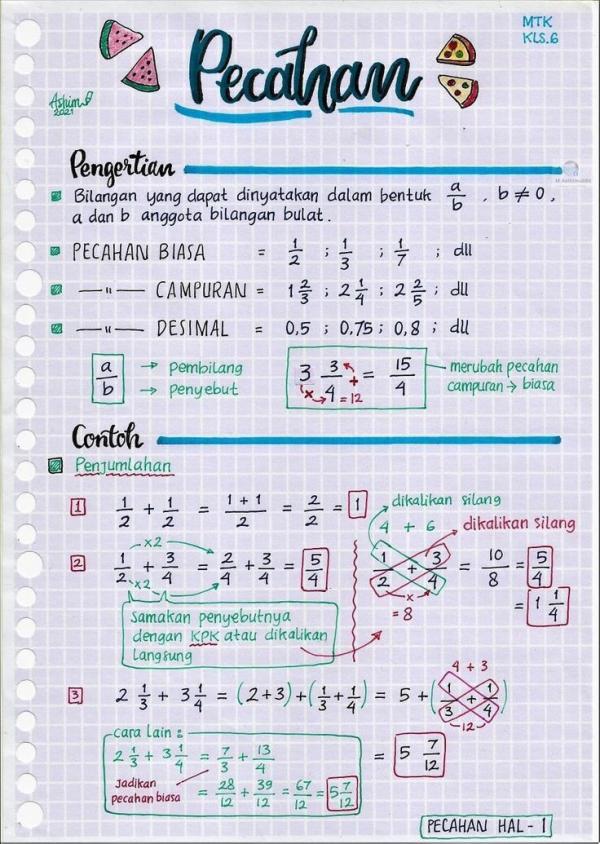 MTK
KLS.6
Pecahan
Ashim
2021
Pengertian
Bilangan yang dapat dinyatakan dalam bentuk a/b , b ≠ 0,
a dan b anggota bilangan bulat.
PECAHAN BIASA = 1/2 ; 1/3 ; 1/7 ; dll
—〃— CAMPURAN = 1 2/3 ; 2 1/4 ; 2 2/5 ; dll
—〃— DESIMAL = 0,5 ; 0,75 ; 0,8 ; dll
a/b → pembilang
→ penyebut
3 3/4 = 15/4
x + = 12
merubah pecahan
campuran → biasa
Contoh
Penjumlahan
1 1/2 + 1/2 = 1+1/2 = 2/2 = 1
2 1/2 + 3/4 = 2/4 + 3/4 = 5/4
x2
x2
Samakan penyebutnya
dengan KPK atau dikalikan
langsung
dikalikan silang
4 + 6
dikalikan silang
1/2 + 3/4 = 10/8 = 5/4
x
= 8
= 1 1/4
3 2 1/3 + 3 1/4 = (2+3) + (1/3 + 1/4) = 5 + (1/3 + 1/4)
4 + 3
12
= 5 7/12
cara lain :
2 1/3 + 3 1/4 = 7/3 + 13/4
Jadikan
pecahan biasa
= 28/12 + 39/12 = 67/12 = 5 7/12
PECAHAN HAL - 1